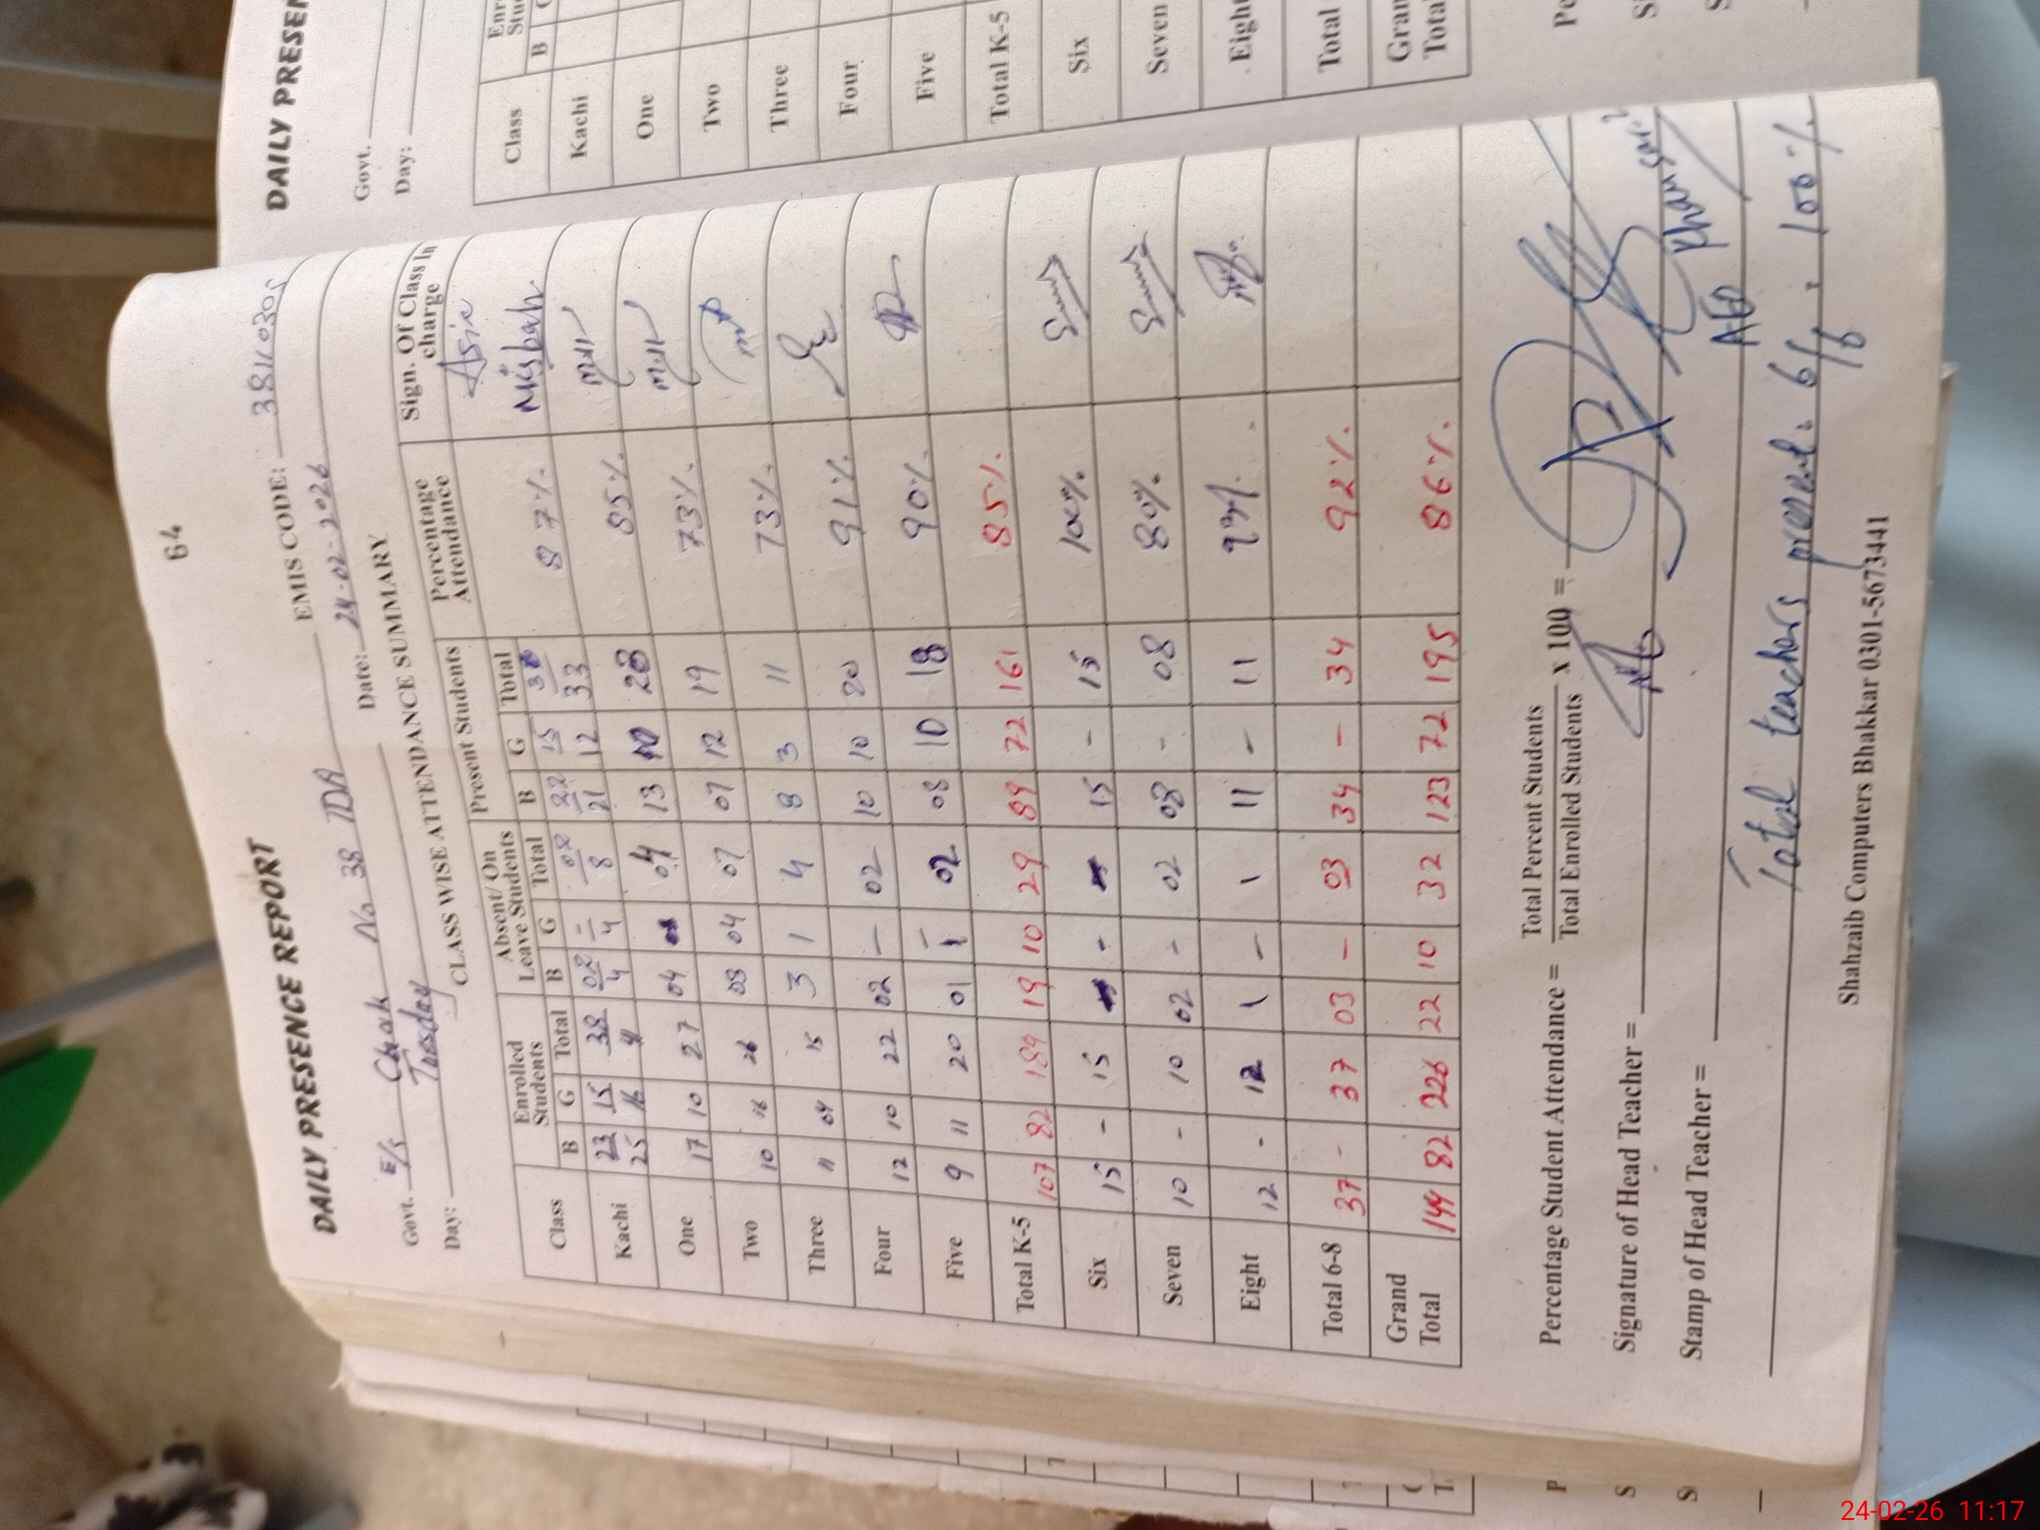 64
DAILY PRESENCE REPORT
Govt. E/s Chak No 38 TDA EMIS CODE: 38110305
Day: Tuesday Date: 24-02-2026
CLASS WISE ATTENDANCE SUMMARY
Class Enrolled Students Absent/ On Leave Students Present Students Percentage Attendance Sign. Of Class In charge
B G Total B G Total B G Total
Kachi 23 15 38 02 - 02 22 15 Asia
25 16 41 4 4 8 21 12 33 87% Misbah
One 17 10 27 04 04 13 10 23 85%
Two 10 16 26 03 04 07 07 12 19 73%
Three 11 04 15 3 1 4 8 3 11 73%
Four 12 10 22 02 - 02 10 10 20 91%
Five 9 11 20 01 1 02 08 10 18 90%
Total K-5 107 82 189 19 10 29 89 72 161 85%
Six 15 - 15 - 15 - 15 100%
Seven 10 - 10 02 - 02 08 - 08 80%
Eight 12 - 12 1 - 1 11 - 11
Total 6-8 37 - 37 03 - 03 34 - 34 92%
Grand Total 144 82 226 22 10 32 123 72 195 86%
Percentage Student Attendance = Total Percent Students
Total Enrolled Students x 100 =
Signature of Head Teacher =
Stamp of Head Teacher =
Total teachers present = 6/6 = 100%
Shahzaib Computers Bhakkar 0301-5673441
DAILY PRESEN
Govt.
Day:
Class Enr Stu
B
Kachi
One
Two
Three
Four
Five
Total K-5
Six
Seven
Eight
Total
Gran
Total
24-02-26 11:17